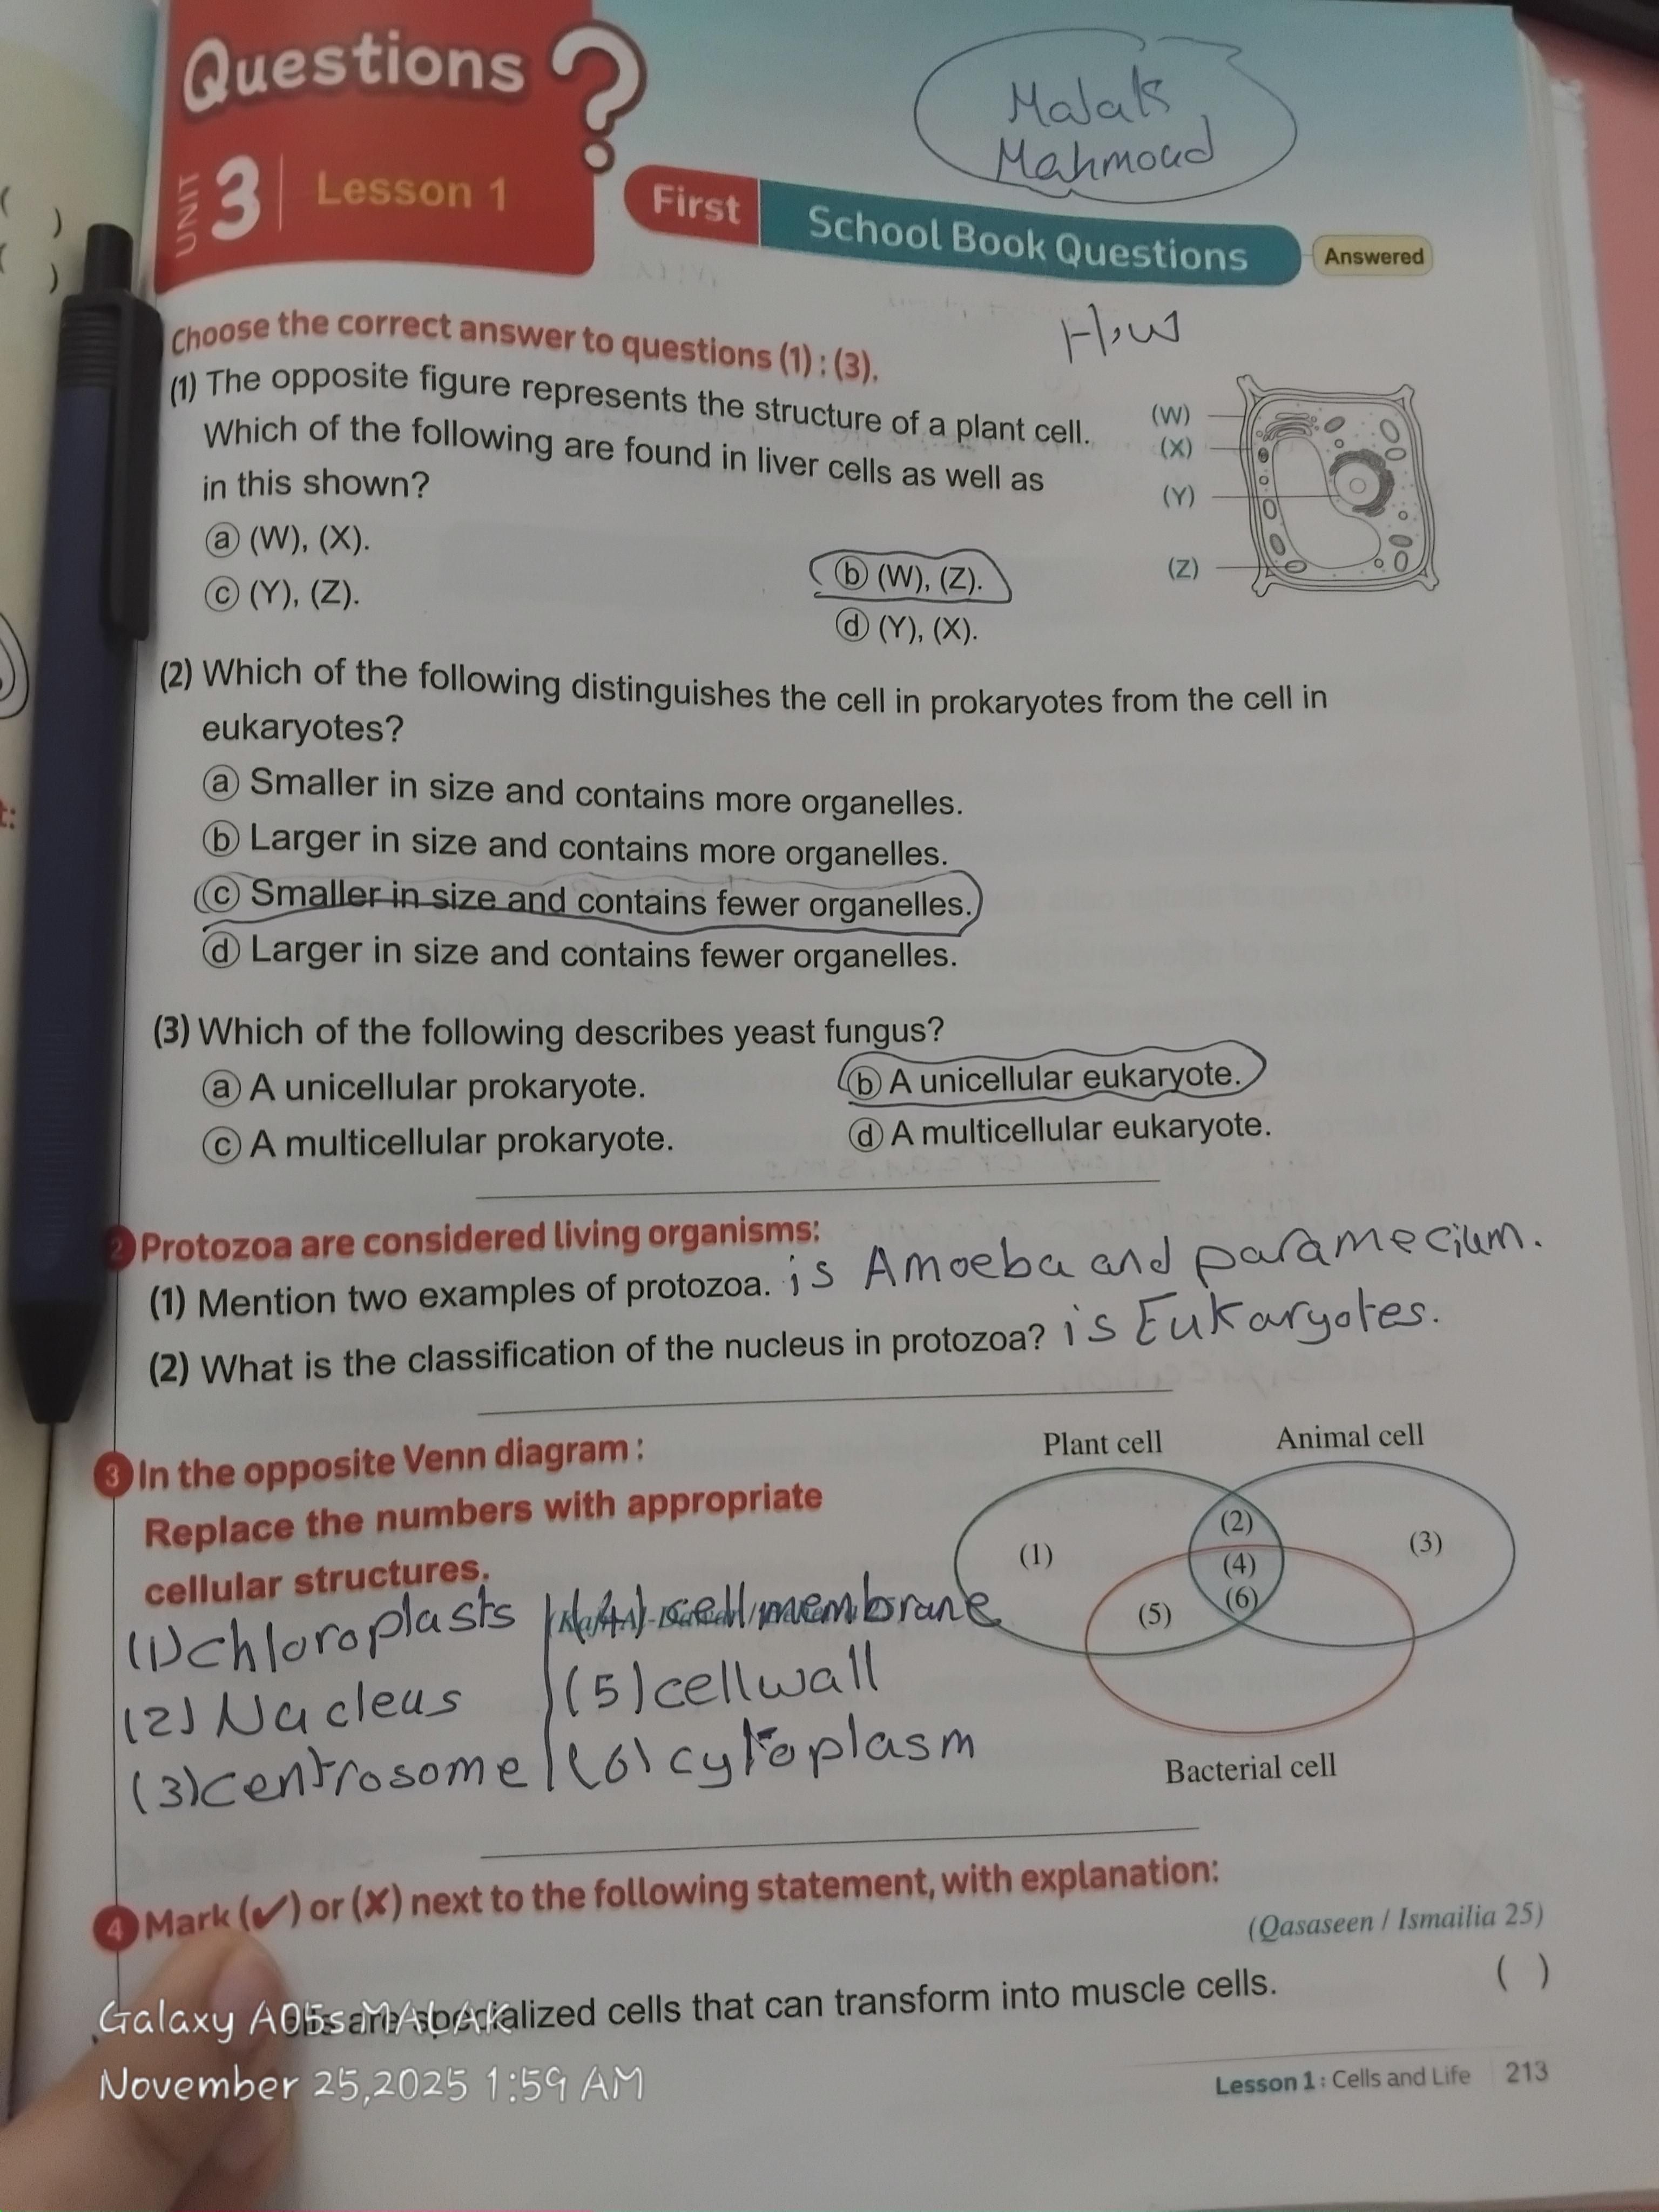 Questions ?
UNIT 3 Lesson 1
Malak
Mahmoud
First School Book Questions Answered
H.w
Choose the correct answer to questions (1) : (3).
(1) The opposite figure represents the structure of a plant cell.
Which of the following are found in liver cells as well as
in this shown?
(W)
(X)
(Y)
(Z)
a (W), (X).
b (W), (Z).
c (Y), (Z).
d (Y), (X).
(2) Which of the following distinguishes the cell in prokaryotes from the cell in
eukaryotes?
a Smaller in size and contains more organelles.
b Larger in size and contains more organelles.
c Smaller in size and contains fewer organelles.
d Larger in size and contains fewer organelles.
(3) Which of the following describes yeast fungus?
a A unicellular prokaryote.
b A unicellular eukaryote.
c A multicellular prokaryote.
d A multicellular eukaryote.
2 Protozoa are considered living organisms:
(1) Mention two examples of protozoa. is Amoeba and paramecium.
(2) What is the classification of the nucleus in protozoa? is Eukaryotes.
3 In the opposite Venn diagram :
Replace the numbers with appropriate
cellular structures.
Plant cell
Animal cell
(1)
(2)
(3)
(4)
(5)
(6)
Bacterial cell
(1) chloroplasts
(2) Nucleus
(3) centrosome
(4) cell membrane
(5) cell wall
(6) cytoplasm
4 Mark (✔) or (✘) next to the following statement, with explanation:
(Qasaseen / Ismailia 25)
are specialized cells that can transform into muscle cells. ( )
Galaxy A05s MALAK
November 25,2025 1:59 AM
Lesson 1 : Cells and Life 213